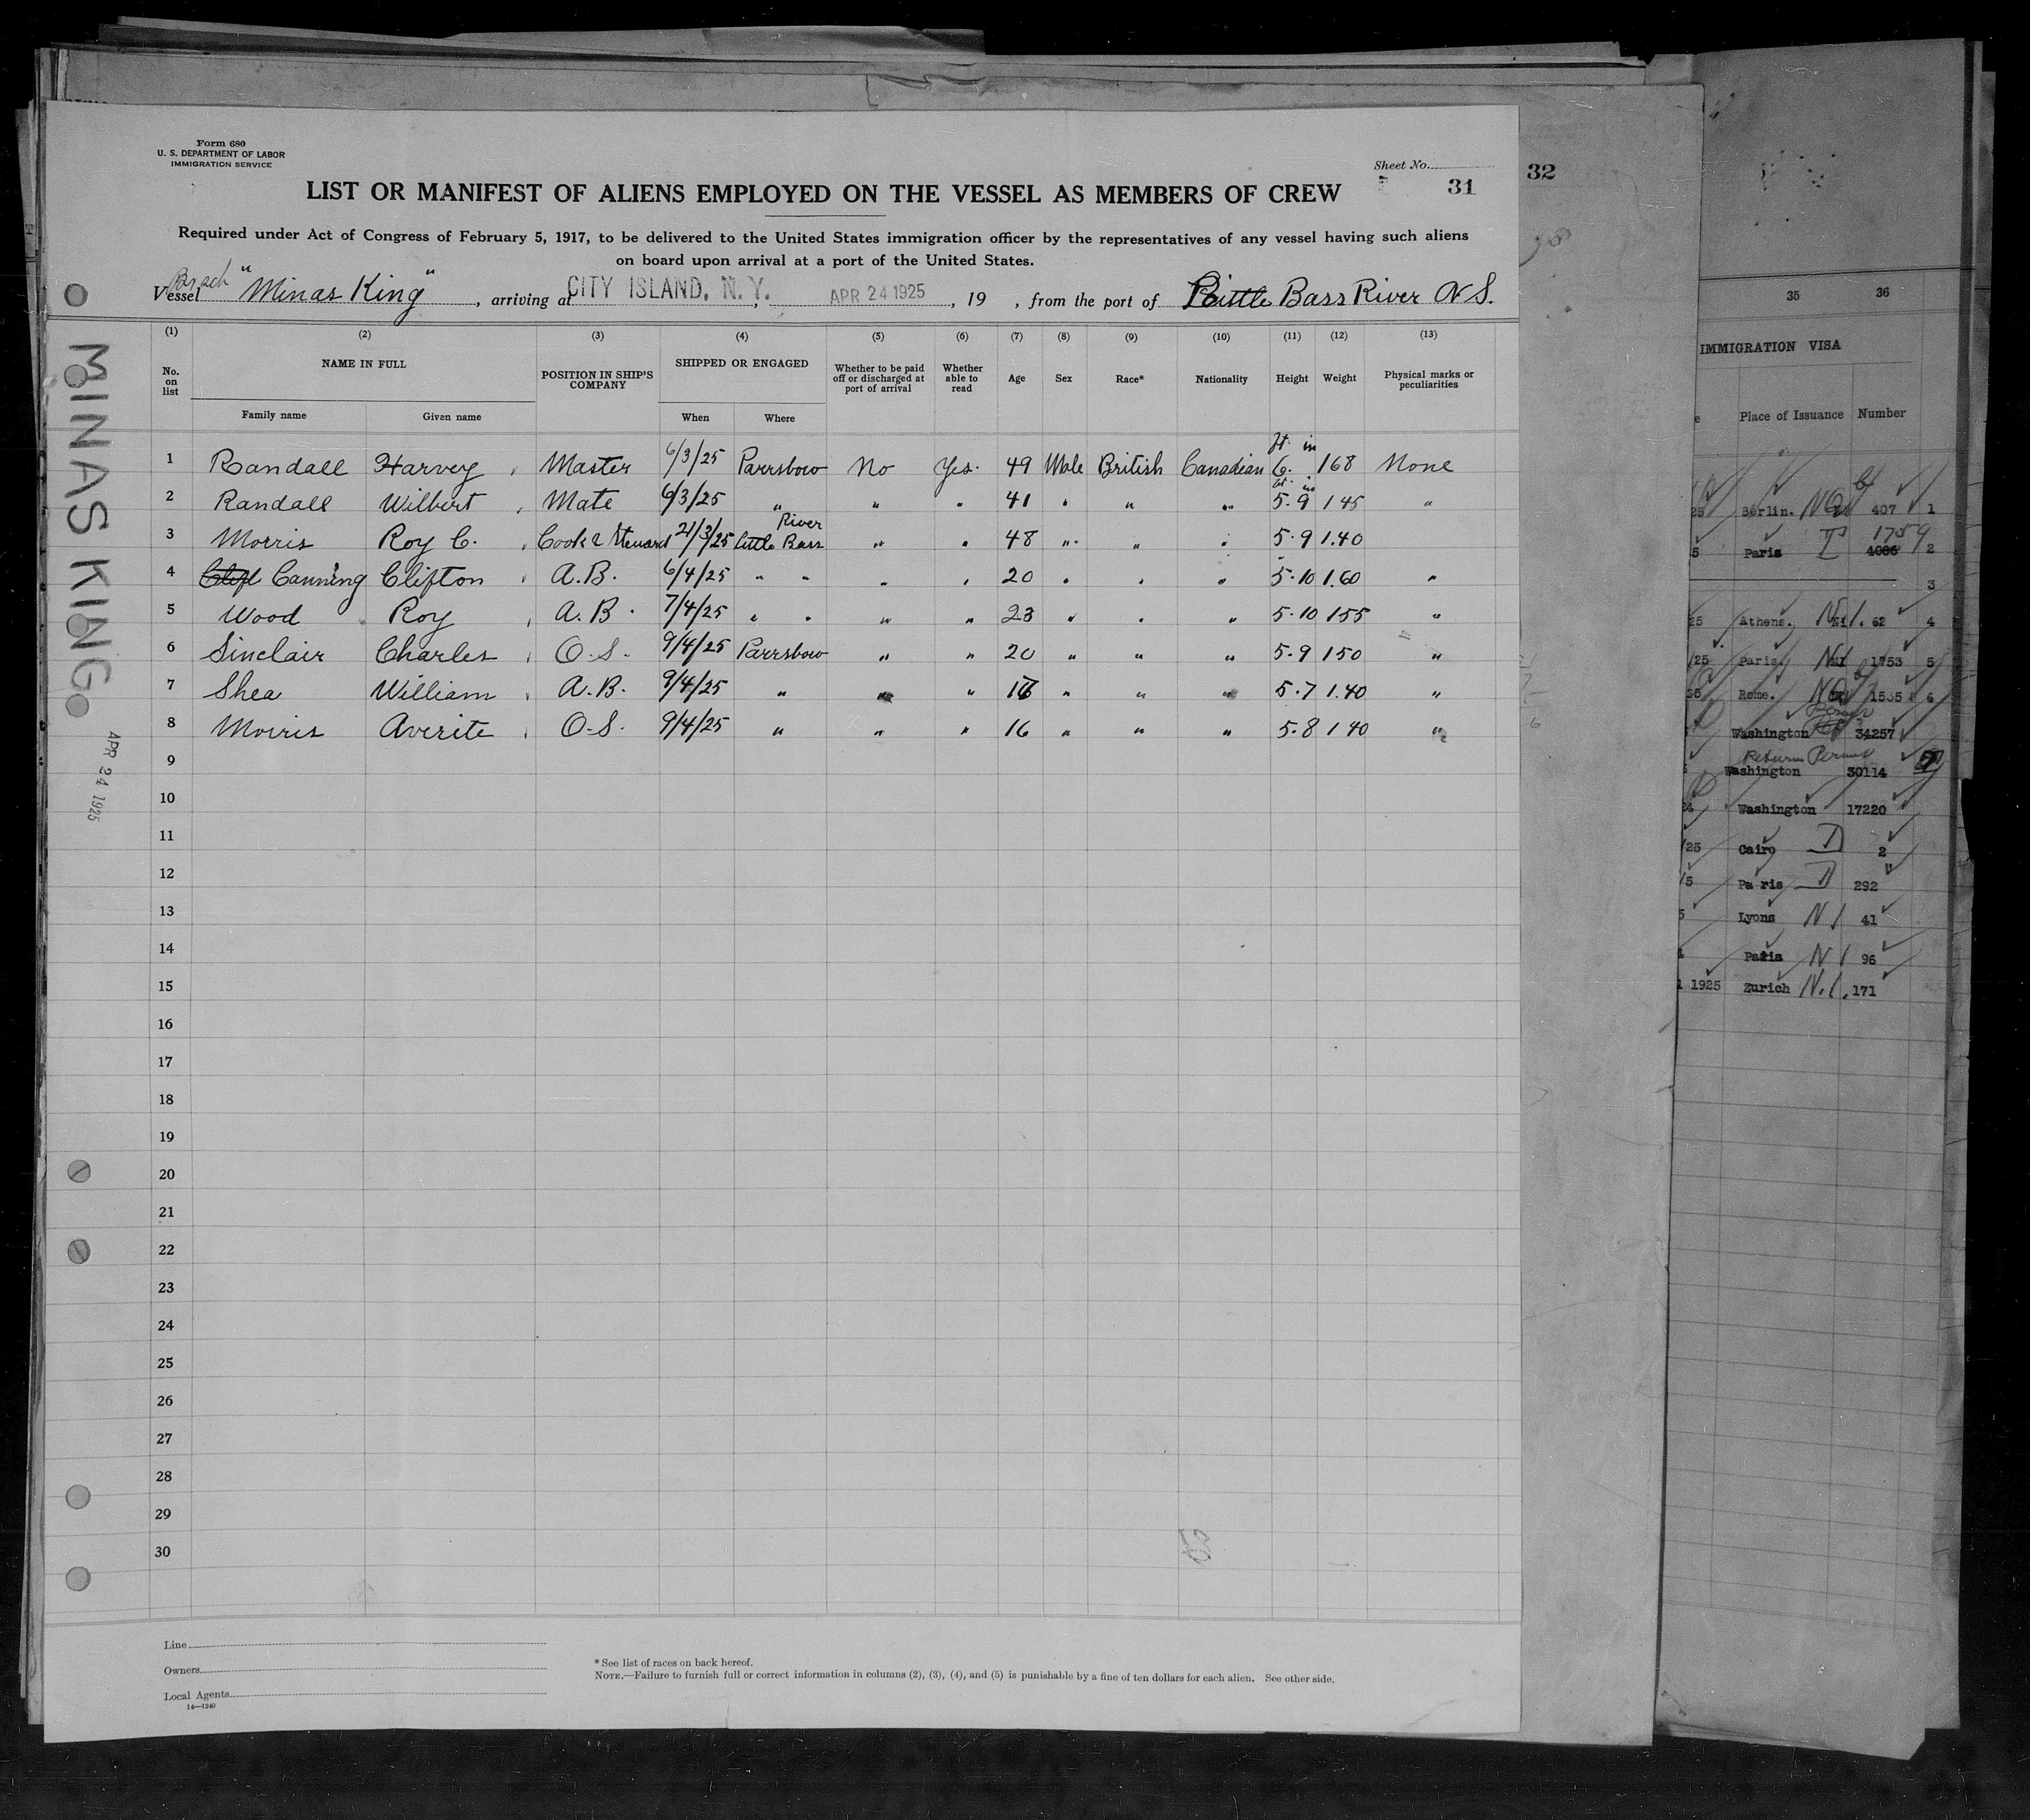 Form 680
U. S. DEPARTMENT OF LABOR
IMMIGRATION SERVICE
Sheet No.
31
32
LIST OR MANIFEST OF ALIENS EMPLOYED ON THE VESSEL AS MEMBERS OF CREW
Required under Act of Congress of February 5, 1917, to be delivered to the United States immigration officer by the representatives of any vessel having such aliens
on board upon arrival at a port of the United States.
Vessel "Minas King", arriving at CITY ISLAND, N. Y., APR 24 1925, 19 , from the port of Little Bass River N S.
(1) (2) (3) (4) (5) (6) (7) (8) (9) (10) (11) (12) (13)
No. on list NAME IN FULL POSITION IN SHIP'S COMPANY SHIPPED OR ENGAGED Whether to be paid off or discharged at port of arrival Whether able to read Age Sex Race* Nationality Height Weight Physical marks or peculiarities
Family name Given name When Where
ft in
1 Randall Harvey Master 6/3/25 Parrsboro No Yes. 49 Male British Canadian 6. 168 None
ft in
2 Randall Wilbert Mate 6/3/25 " " " 41 " " " 5.9 145 "
River
3 Morris Roy C. Cook & Steward 21/3/25 Little Bass " " 48 " " " 5.9 1.40
4 Canning Clifton A.B. 6/4/25 " " " " 20 " " " 5.10 1.60 "
5 Wood Roy A.B. 7/4/25 " " " " 23 " " " 5.10 155 "
6 Sinclair Charles O.S. 9/4/25 Parrsboro " " 20 " " " 5.9 150 "
7 Shea William A.B. 9/4/25 " " " " " " 5.7 1.40 "
8 Morris Averite O.S. 9/4/25 " " " 16 " " " 5.8 140 "
9
10
11
12
13
14
15
16
17
18
19
20
21
22
23
24
25
26
27
28
29
30
Line
Owners
Local Agents
14—1240
* See list of races on back hereof.
NOTE.—Failure to furnish full or correct information in columns (2), (3), (4), and (5) is punishable by a fine of ten dollars for each alien. See other side.
MINAS KING
APR 24 1925
35 36
IMMIGRATION VISA
Place of Issuance Number
25 Berlin. 407 1
5 Paris 1759 2
3
25 Athens. 62 4
/25 Paris. 1753 5
25 Rome. 1535 6
Washington 34257
Return Permit
Washington 30114
24 Washington 17220
/25 Cairo 2
/5 Paris 292
5 Lyons N I 41
Paris N I 96
1925 Zurich N.I. 171